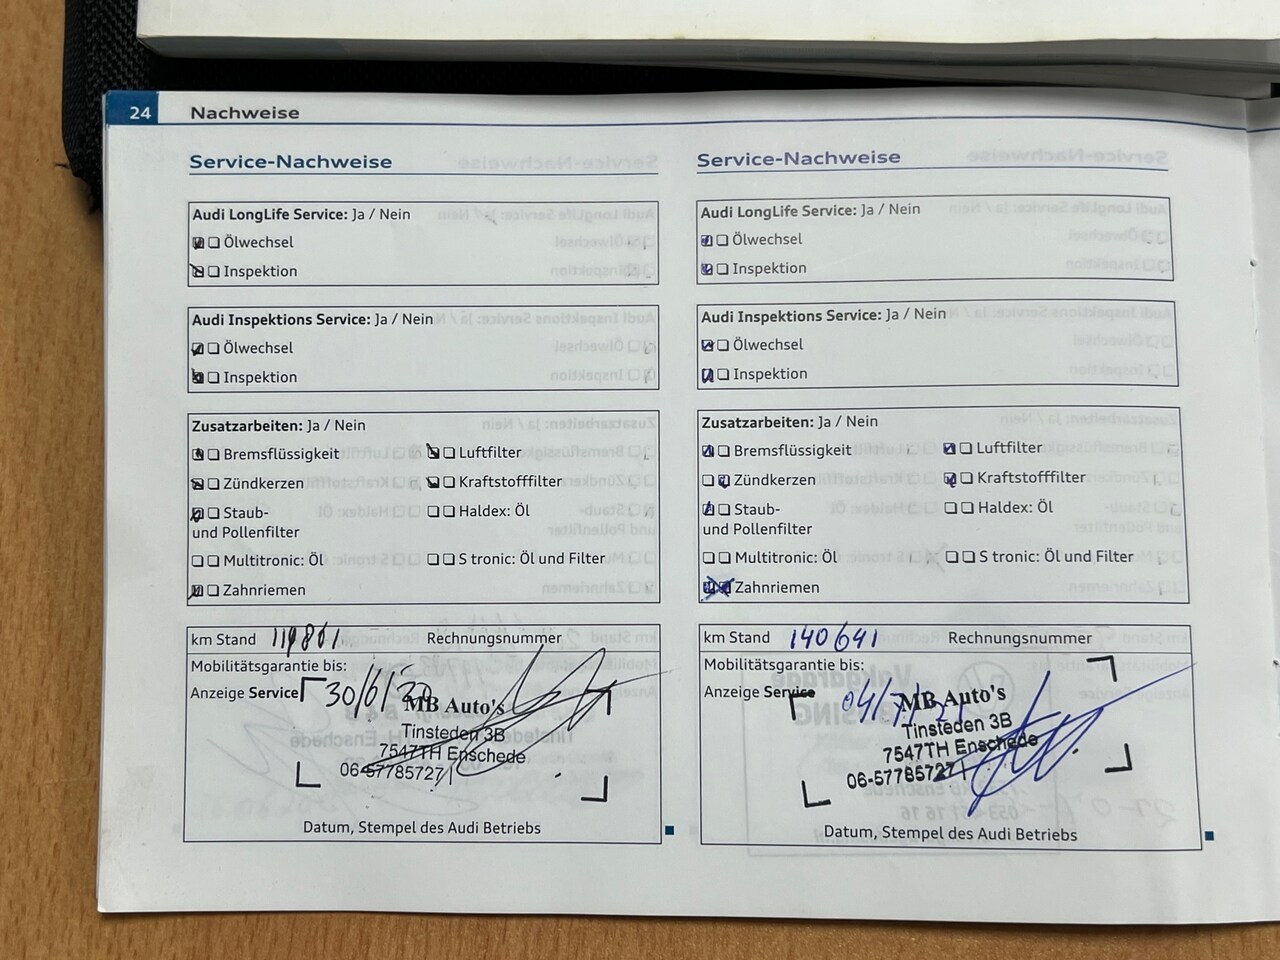 24 Nachweise
Service-Nachweise
Audi LongLife Service: Ja / Nein
Ölwechsel
Inspektion
Audi Inspektions Service: Ja / Nein
Ölwechsel
Inspektion
Zusatzarbeiten: Ja / Nein
Bremsflüssigkeit Luftfilter
Zündkerzen Kraftstofffilter
Staub- Haldex: Öl
und Pollenfilter
Multitronic: Öl S tronic: Öl und Filter
Zahnriemen
km Stand Rechnungsnummer
Mobilitätsgarantie bis:
Anzeige Service
30/6/20
MB Auto's
Tinsteden 3B
7547TH Enschede
06-57785727
Datum, Stempel des Audi Betriebs
Service-Nachweise
Audi LongLife Service: Ja / Nein
Ölwechsel
Inspektion
Audi Inspektions Service: Ja / Nein
Ölwechsel
Inspektion
Zusatzarbeiten: Ja / Nein
Bremsflüssigkeit Luftfilter
Zündkerzen Kraftstofffilter
Staub- Haldex: Öl
und Pollenfilter
Multitronic: Öl S tronic: Öl und Filter
Zahnriemen
km Stand 140641 Rechnungsnummer
Mobilitätsgarantie bis:
Anzeige Service
04/7/21
MB Auto's
Tinsteden 3B
7547TH Enschede
06-57785727
Datum, Stempel des Audi Betriebs